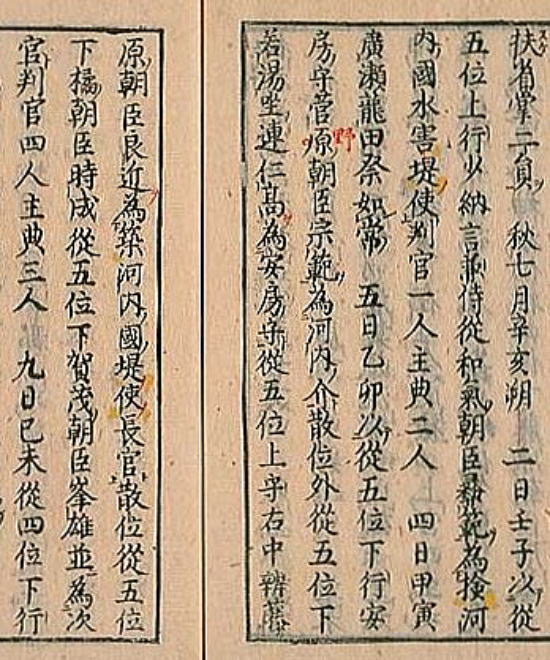 扶省掌二員　秋七月辛亥朔　二日壬子以從
五位上行少納言兼侍從和氣朝臣彝範為撿河
内國水害堤使判官一人主典二人　四日甲寅
廣瀬龍田祭如常　五日乙卯以從五位下行安
房守菅原朝臣宗範為河内介散位外從五位下
野
若湯坐連仁高為安房守從五位上守右中辨藤
原朝臣良近為築河内國堤使長官散位從五位
下橘朝臣時成從五位下賀茂朝臣峯雄並為次
官判官四人主典三人　九日己未從四位下行